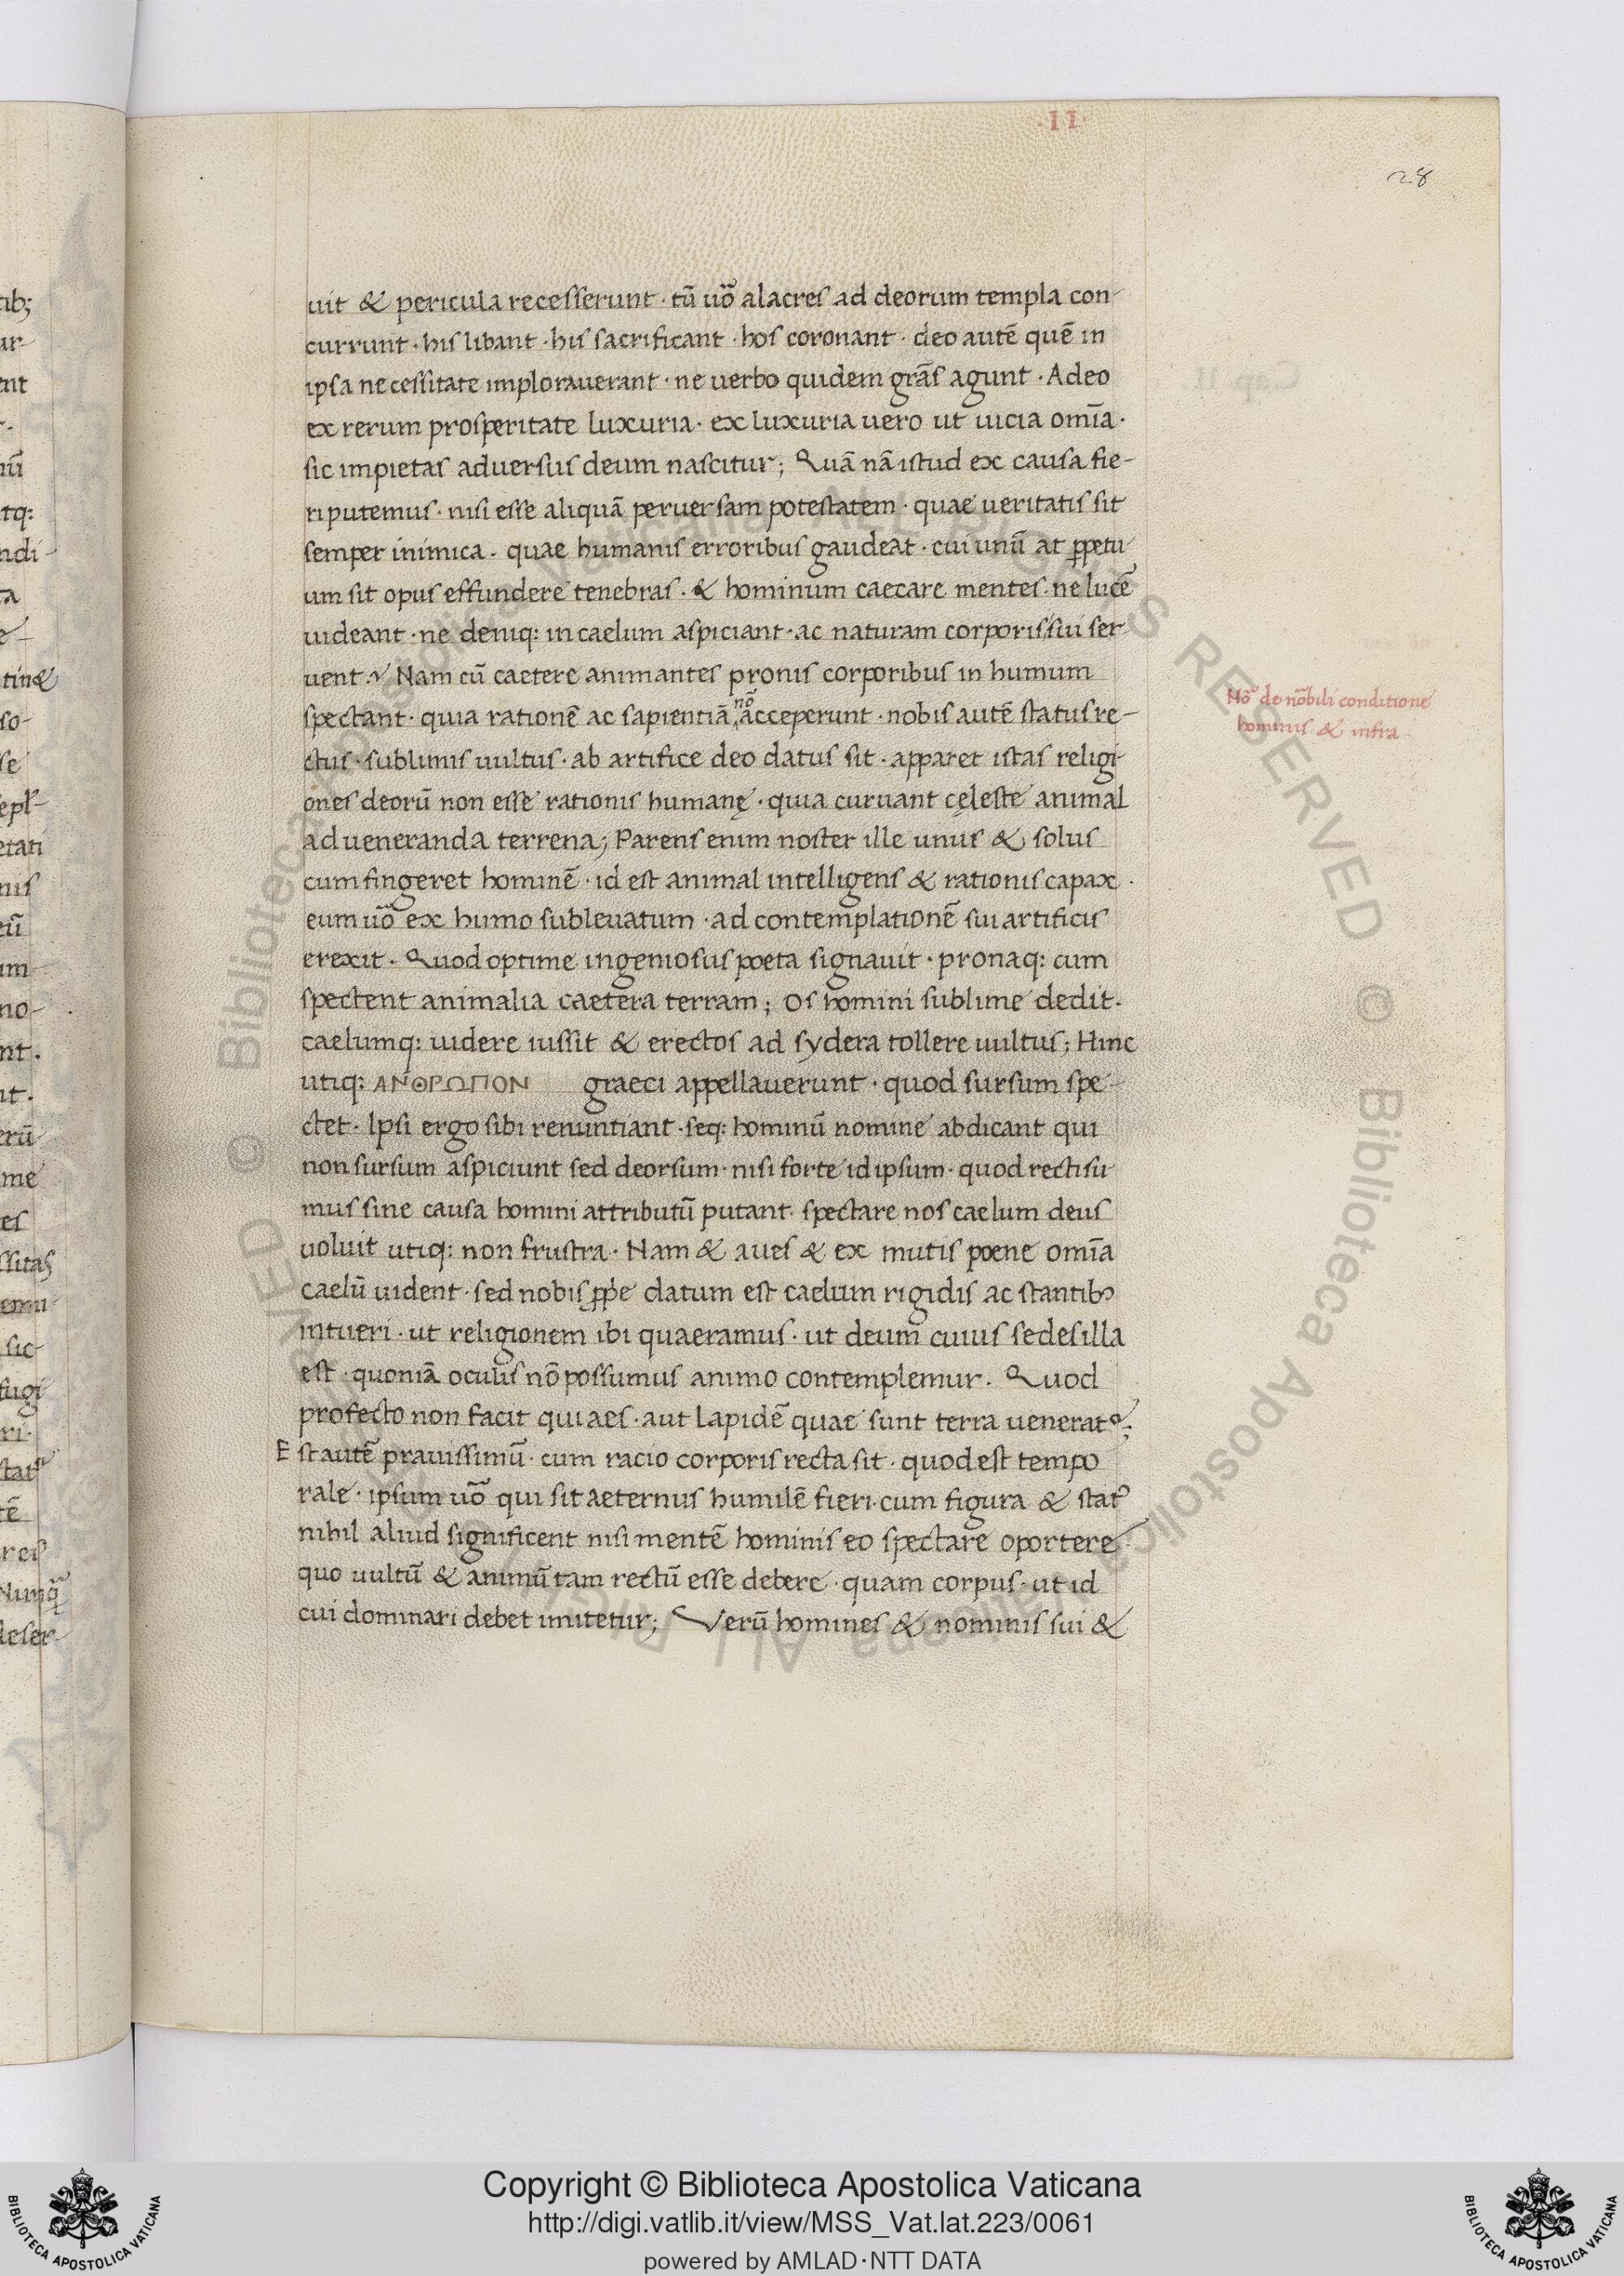 ·II·
28
uit & pericula recesserunt · tū uō alacres ad deorum templa con-
currunt · his libant · his sacrificant · hos coronant · deo autē quē in
ipsa necessitate implorauerant · ne uerbo quidem grās agunt · Adeo
ex rerum prosperitate luxuria · ex luxuria uero ut uicia om̄ia ·
sic impietas aduersus deum nascitur; Quā nā istud ex causa fie-
ri putemus · nisi esse aliquā peruersam potestatem · quae ueritatis sit
semper inimica · quae humanis erroribus gaudeat · cui unū at ꝑpetu
um sit opus effundere tenebras · & hominum caecare mentes · ne lucē
uideant · ne deniq: in caelum aspiciant · ac naturam corporis sui ser
uent. Nam cū caetere animantes pronis corporibus in humum
spectant · quia rationē ac sapientiā nō acceperunt · nobis autē status re-
ctus · sublimis uultus · ab artifice deo datus sit · apparet istas religi
ones deorū non esse rationis humanę · quia curuant cęleste animal
ad ueneranda terrena; Parens enim noster ille unus & solus
cum fingeret hominē · id est animal intelligens & rationis capax ·
eum uō ex humo subleuatum · ad contemplationē sui artificis
erexit · Quod optime ingeniosus poeta signauit · pronaq: cum
spectent animalia caetera terram; Os homini sublime dedit ·
caelumq: uidere iussit & erectos ad sydera tollere uultus; Hinc
utiq: ΑΝΘΡΩΠΟΝ graeci appellauerunt · quod sursum spe-
ctet · Ipsi ergo sibi renuntiant · seq: hominū nomine abdicant qui
non sursum aspiciunt sed deorsum · nisi forte id ipsum · quod recti su
mus sine causa homini attributū putant · spectare nos caelum deus
uoluit utiq: non frustra · Nam & aues & ex mutis poene om̄ia
caelū uident · sed nobis ꝓpͥe datum est caelum rigidis ac stantibꝰ
intueri · ut religionem ibi quaeramus · ut deum cuius sedes illa
est · quoniā oculis nō possumus animo contemplemur. Quod
profecto non facit qui aes · aut lapidē quae sunt terra ueneratᷣ;
Est autē prauissimū · cum racio corporis recta sit · quod est tempo
rale · ipsum uō qui sit aeternus humilē fieri · cum figura & statꝰ
nihil aliud significent nisi mentē hominis eo spectare oportere ·
quo uultū & animū tam rectū esse debere · quam corpus · ut id
cui dominari debet imitetur; Verū homines & nominis sui &
Nō de nōbili conditione
hominis & infra
Copyright © Biblioteca Apostolica Vaticana
http://digi.vatlib.it/view/MSS_Vat.lat.223/0061
powered by AMLAD·NTT DATA
BIBLIOTECA APOSTOLICA VATICANA
BIBLIOTECA APOSTOLICA VATICANA